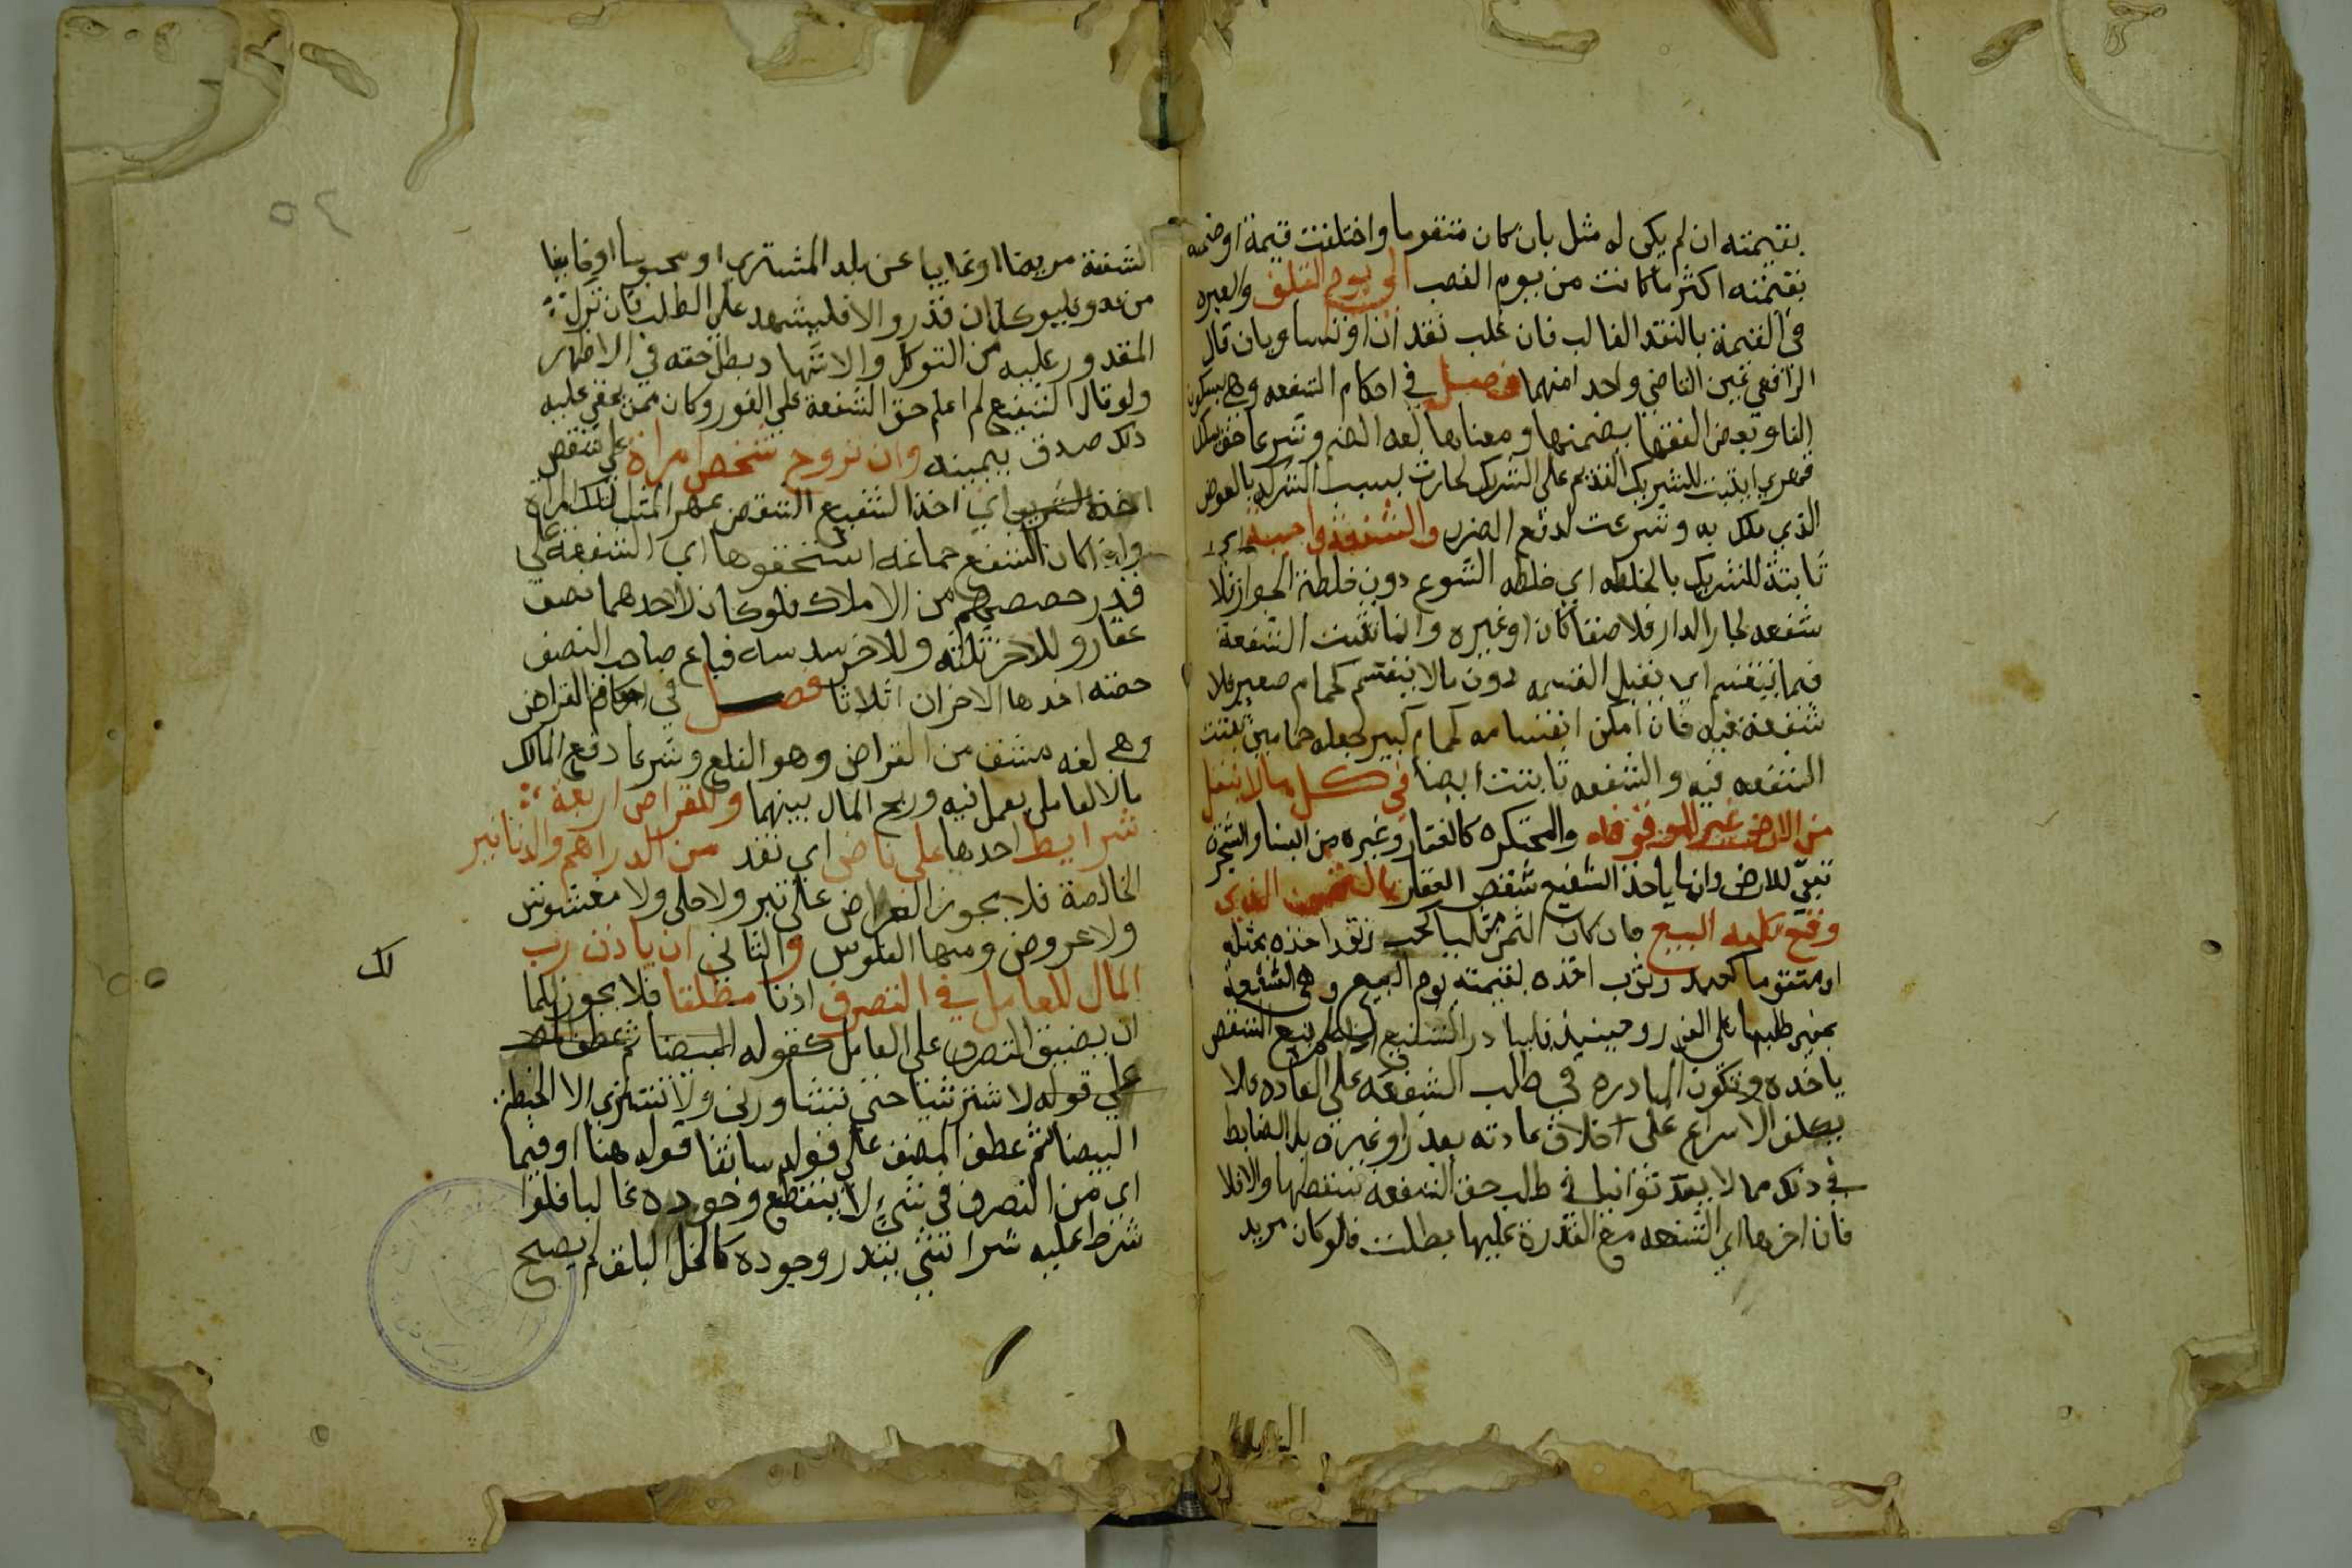 بقيمته ان لم يكن له مثل بان كان متقوما واختلفت قيمة او ضمه
بقيمته اكثر ما كانت من يوم الغصب الى يوم التلف والعبرة
في القيمة بالنقد الغالب فان غلب نقدان او تساويا قال
الرافعي عين القاضي واحد امنهما فصل في احكام الشفعه وهي بسكون
الفا وبعض الفقها يضمنها ومعناها لغه الضم وشرعا حق تملك
قهري يثبت للشريك القديم على الشريك الحادث بسبب الشركه بالعوض
الذي ملك به وشرعت لدفع الضرر والشفعة واجبة اي
ثابتة للشريك بالخلطه اي خلطه الشيوع دون خلطة الجوار فلا
شفعه لجار الدار ملاصقا كان او غيره وانما تثبت الشفعة
فيما ينقسم اي يقبل القسمه دون ما لا ينقسم كحمام صغير فلا
شفعة فيه فان امكن انقسامه كحمام كبير يمكن جعله حمامين ثبتت
الشفعه فيه والشفعه ثابتت ايضا في كل ما لا ينقل
من الارض غير الموقوفه والمحتكره كالعقار وغيره من البنا والشجر
تبعا للارض وانما ياخذ الشفيع شقص العقار بالثمن الذي
وقع عليه البيع فان كان الثمن مثليا كحب ونقد اخذه بمثله
او متقوما كعبد وثوب اخذه بقيمته يوم البيع وهي الشفعة
بمعنى طلبها على الفور وحينيذ فليبادر الشفيع اذا علم بيع الشقص
ياخذه وتكون المبادره في طلب الشفعه على العاده فلا
يكلف الاسراع على خلاف عادته بعدو او غيره بل الضابط
في ذلك مما لا يعد توانيا في طلب حق الشفعه تسقطها والا فلا
فان اخرها اي الشفعه مع القدرة عليها بطلت فلو كان مريد
الشفعة مريضا او غايبا عن بلد المشتري او محبوسا او خايفا
من عدو فليوكل ان قدر والا فليشهد على الطلب فان ترك
المقدور عليه من التوكل والاشهاد بطل حقه في الاظهر
ولو قال الشفيع لم اعلم حق الشفعة على الفور وكان ممن يخفى عليه
ذلك صدق بيمينه وان تزوج شخص امراة على شقص
اخذه اي اخذ الشفيع الشقص بمهر المثل لتلك المراة
وان كان الشفع جماعه استحقوها اي الشفعه على
قدر حصصهم من الاملاك فلو كان لاحدهم نصف
عقار وللاخر ثلثه وللاخر سدسه فباع صاحب النصف
حصته اخذها الاخران اثلاثا فصل في احكام القراض
وهي لغه مشتق من القراض وهو القطع وشرعا دفع المالك
مالا لعامل يعمل فيه وربح المال بينهما وللقراض اربعة
شرايط احدها على ناض اي نقد من الدراهم والدنانير
الخالصة فلا يجوز القراض على تبر ولا حلي ولا مغشوش
ولا عروض ومنها الفلوس والثاني ان ياذن رب
المال للعامل في التصرف اذنا مطلقا فلا يجوز للمالك
ان يضيق التصرف على العامل كقوله البيضا ثم عطف المص
على قوله لا تشتر شيا حتى تشاورني ولا تشتري الا الحنطة
البيضا ثم عطف المصنف على قوله سابقا قوله هنا او فيما
اي من التصرف في شيء لا ينقطع وجوده غالبا فلو
شرط عليه شرا شي يندر وجوده كالخيل البلق لم يصح